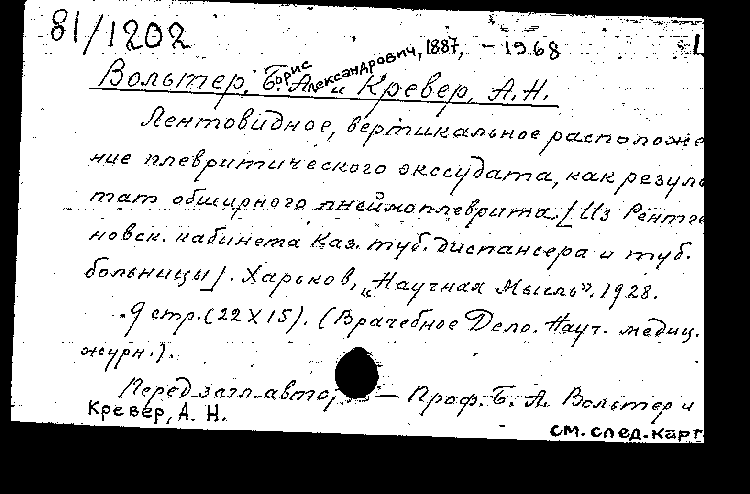 81/1202
Борис Александрович, 1887, - 1968
Вольтер, Б. А. и Кревер, А.Н.
Лентовидное, вертикальное расположе
ние плевритического экссудата, как резуль
тат обширного пнеймоплеврита. [Из Рентге
новск. кабинета Каз. туб. диспансера и туб.
больницы]. Харьков, „Научная Мысль". 1928.
9 стр. (22 X 15). (Врачебное Дело. Науч. медиц.
журн.).
Перед загл. автор, — Проф. Б. А. Вольтер и
Кревер, А. Н.
см. след. карт.